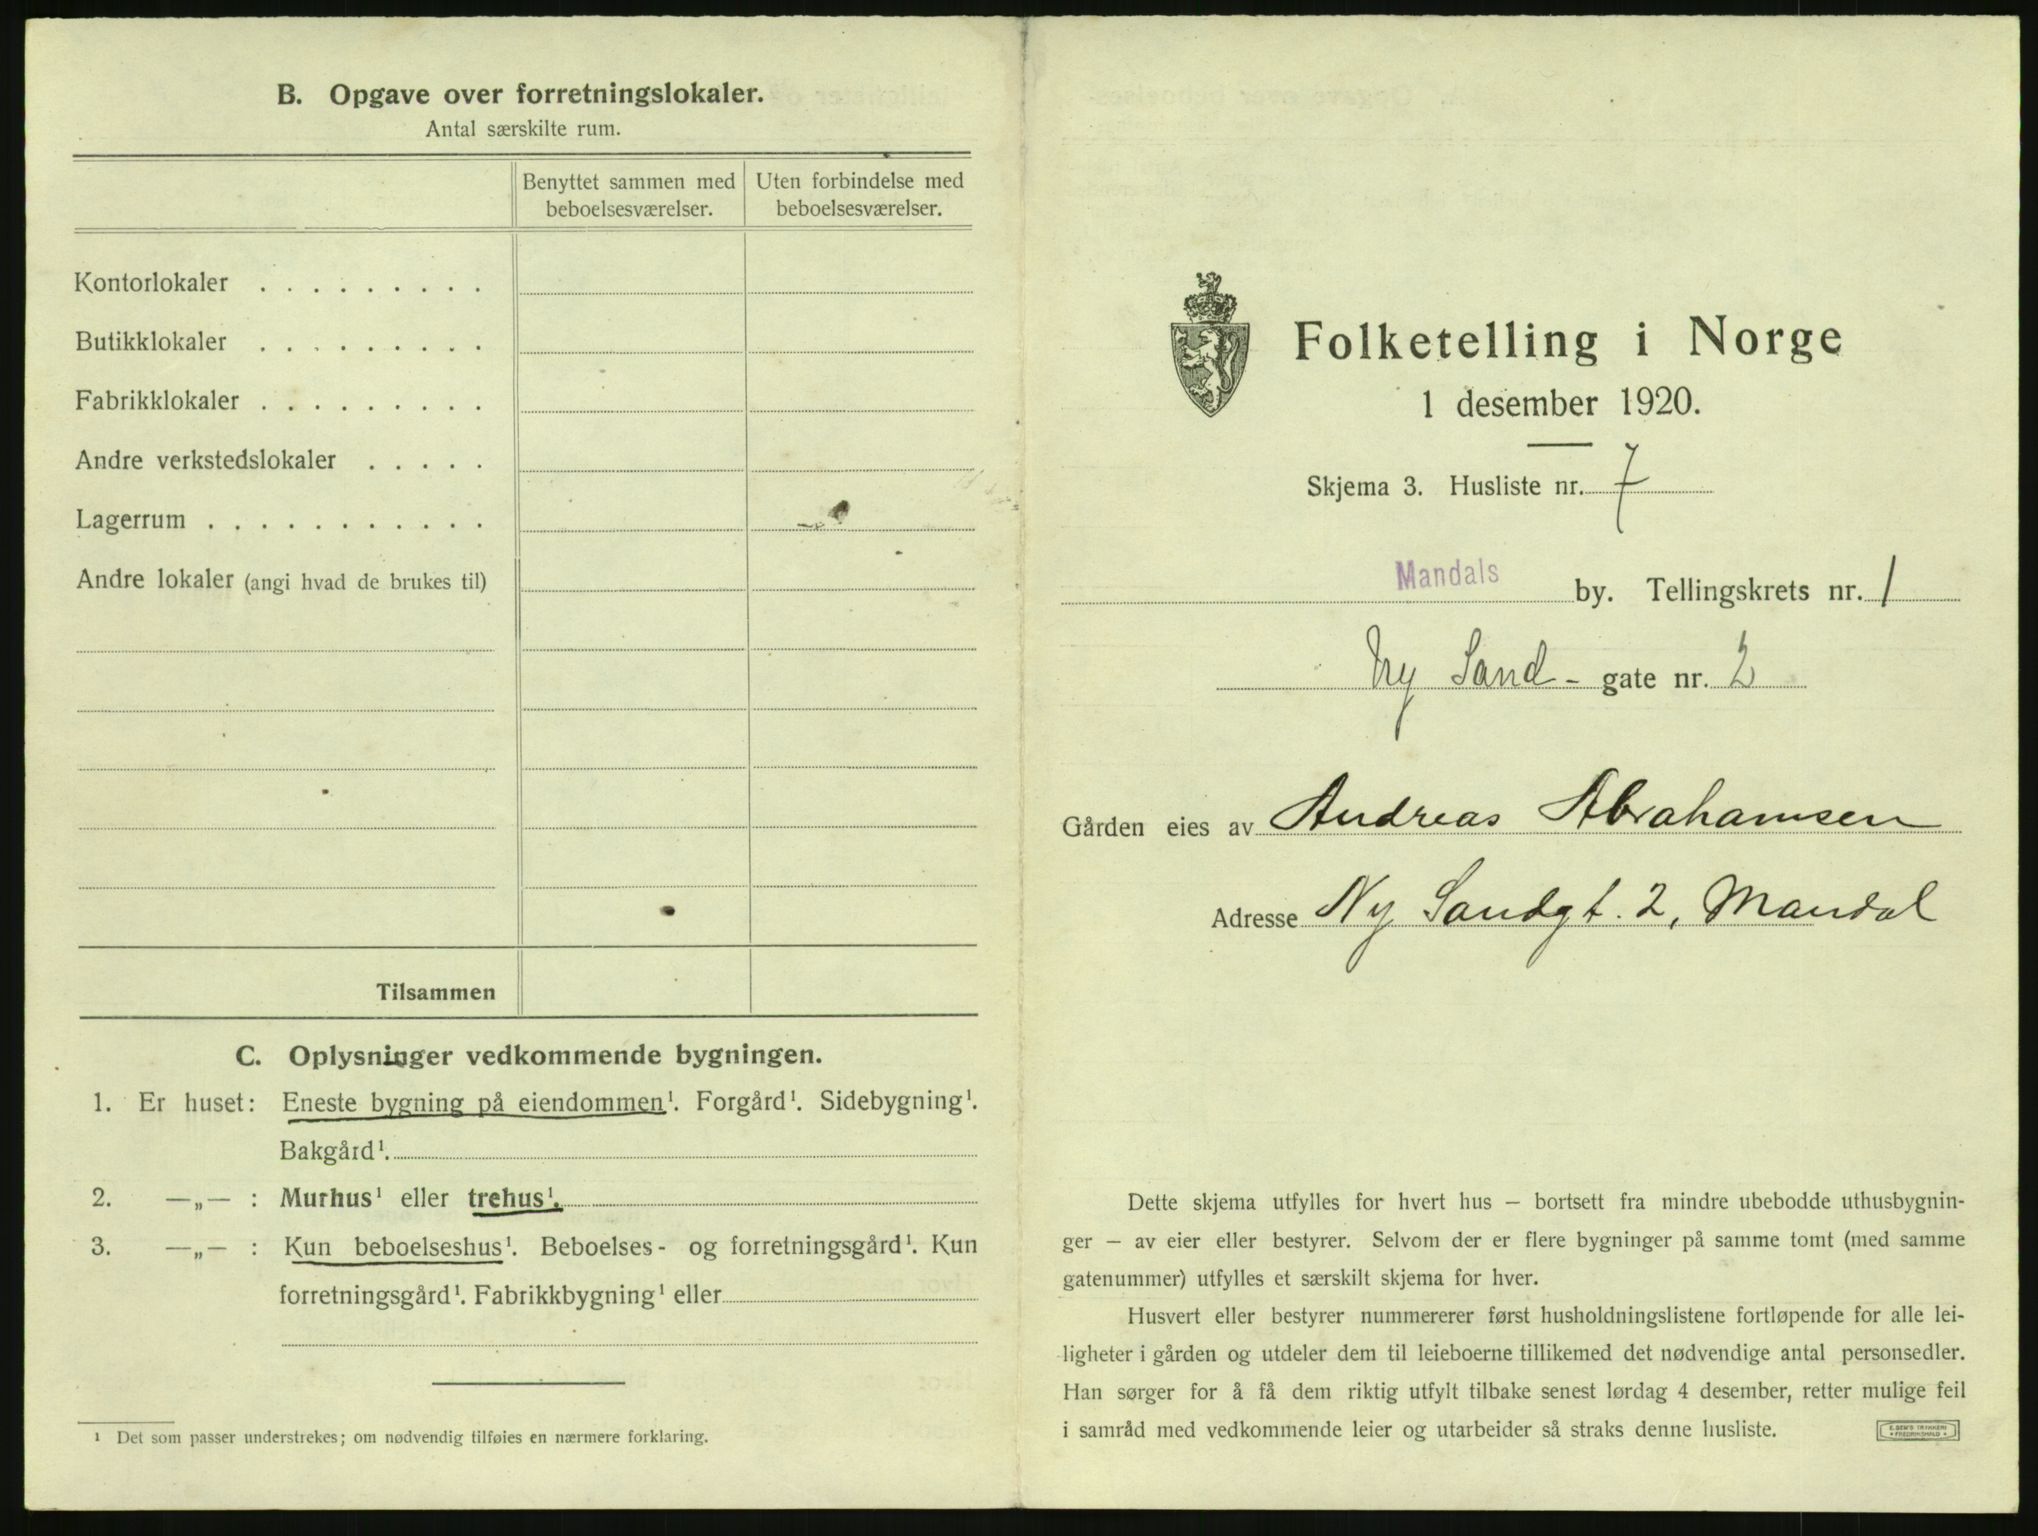 B. Opgave over forretningslokaler.
Antal særskilte rum.
Benyttet sammen med
beboelsesværelser.
Uten forbindelse med
beboelsesværelser.
Kontorlokaler . . . . . . . . .
Butikklokaler . . . . . . . . .
Fabrikklokaler . . . . . . . . .
Andre verkstedslokaler . . . . .
Lagerrum . . . . . . . . . . .
Andre lokaler (angi hvad de brukes til)
Tilsammen
C. Oplysninger vedkommende bygningen.
1. Er huset: Eneste bygning på eiendommen¹. Forgård¹. Sidebygning¹.
Bakgård¹.
2. —„— : Murhus¹ eller trehus¹.
3. —„— : Kun beboelseshus¹. Beboelses- og forretningsgård¹. Kun
forretningsgård¹. Fabrikkbygning¹ eller
¹ Det som passer understrekes; om nødvendig tilføies en nærmere forklaring.
Folketelling i Norge
1 desember 1920.
Skjema 3. Husliste nr. 7
Mandals by. Tellingskrets nr. 1
Ny Sand - gate nr. 2
Gården eies av Andreas Abrahamsen
Adresse Ny Sandgt. 2, Mandal
Dette skjema utfylles for hvert hus — bortsett fra mindre ubebodde uthusbygnin-
ger — av eier eller bestyrer. Selvom der er flere bygninger på samme tomt (med samme
gatenummer) utfylles et særskilt skjema for hver.
Husvert eller bestyrer nummererer først husholdningslistene fortløpende for alle lei-
ligheter i gården og utdeler dem til leieboerne tillikemed det nødvendige antal personsedler.
Han sørger for å få dem riktig utfylt tilbake senest lørdag 4 desember, retter mulige feil
i samråd med vedkommende leier og utarbeider så straks denne husliste.